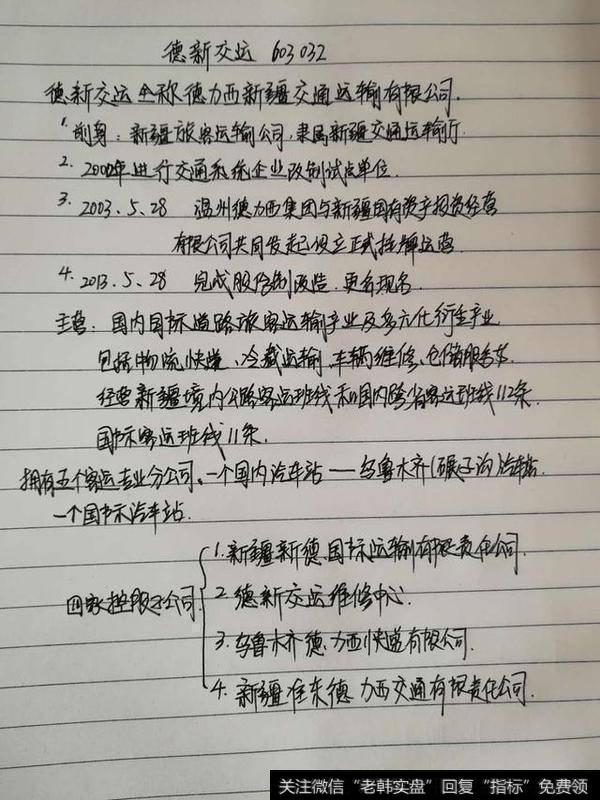 德新交运 603032
德新交运全称德力西新疆交通运输有限公司.
1. 前身: 新疆旅客运输公司, 隶属新疆交通运输厅.
2. 2002年进行交通系统企业改制试点单位.
3. 2003.5.28 温州德力西集团与新疆国有资产投资经营
有限公司共同发起设立正式挂牌运营.
4. 2013.5.28 完成股份制改造. 更名现名.
主营: 国内国际道路旅客运输产业及多元化衍生产业
包括物流快递、冷藏运输、车辆维修、仓储服务等.
经营新疆境内公路客运班线和国内跨省客运班线112条.
国际客运班线11条.
拥有五个客运专业分公司、一个国内汽车站——乌鲁木齐(碾子沟)汽车站.
一个国际汽车站.
四家控股子公司
1. 新疆新德国际运输有限责任公司.
2. 德新交运维修中心.
3. 乌鲁木齐德力西快递有限公司.
4. 新疆准东德力西交通有限责任公司.
关注微信"老韩实盘"回复"指标"免费领